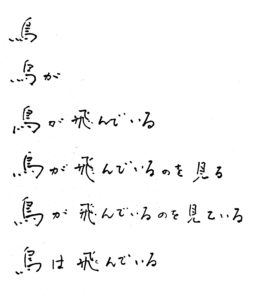 鳥
鳥が
鳥が飛んでいる
鳥が飛んでいるのを見る
鳥が飛んでいるのを見ている
鳥は飛んでいる